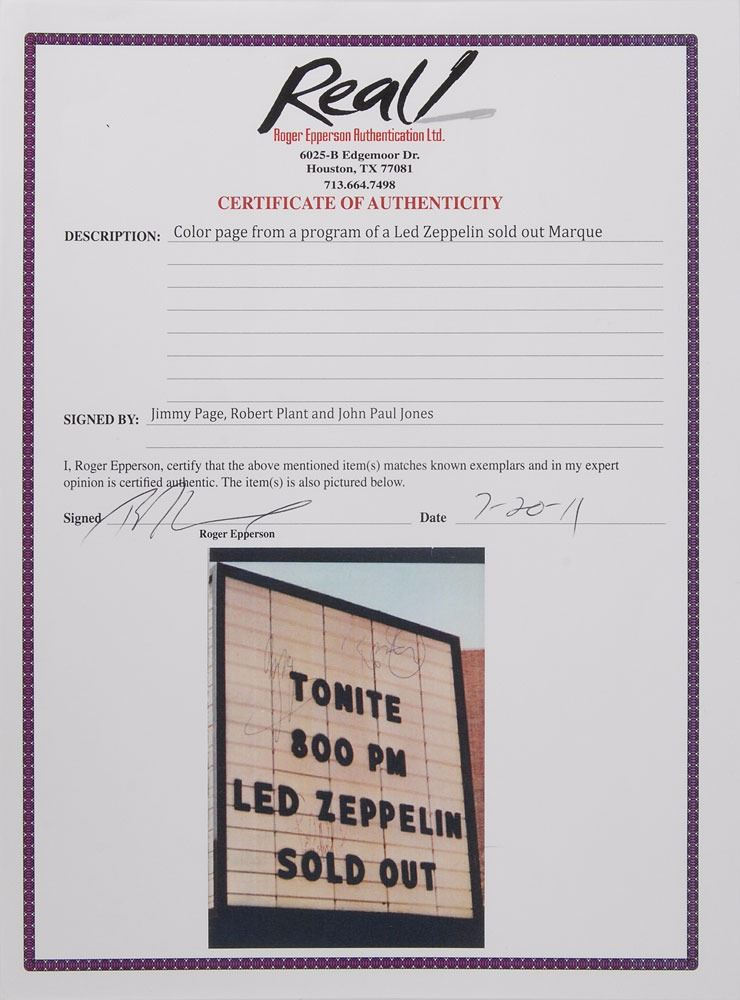 Real!
Roger Epperson Authentication Ltd.
6025-B Edgemoor Dr.
Houston, TX 77081
713.664.7498
CERTIFICATE OF AUTHENTICITY
DESCRIPTION: Color page from a program of a Led Zeppelin sold out Marque
SIGNED BY: Jimmy Page, Robert Plant and John Paul Jones
I, Roger Epperson, certify that the above mentioned item(s) matches known exemplars and in my expert
opinion is certified authentic. The item(s) is also pictured below.
Signed Date 7-20-11
Roger Epperson
TONITE
800 PM
LED ZEPPELIN
SOLD OUT